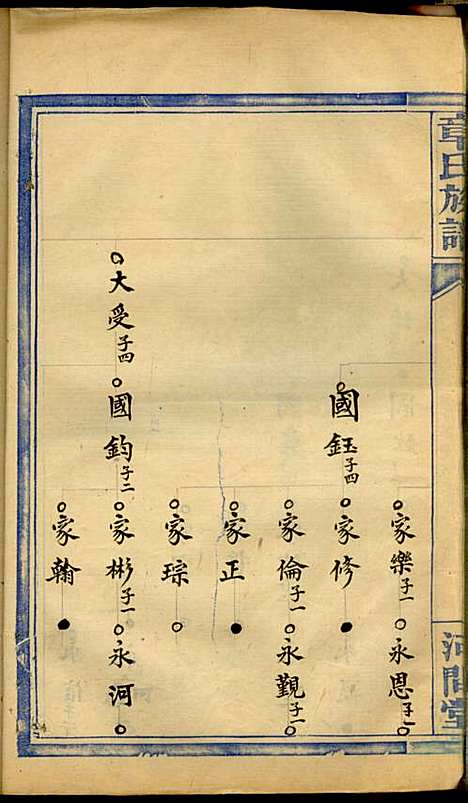 章氏族譜
河間堂
家樂子一
永恩子一
國鈺子四
家修
家倫子一
永觀子一
家正
家琮
大受子四
國鈞子二
家彬子一
永河
家翰